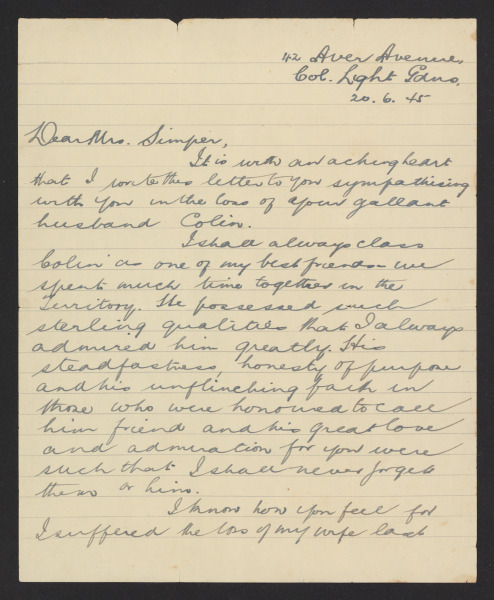 42 Aver Avenue,
Col. Light Gdns,
20. 6. 45
Dear Mrs. Simper,
It is with an aching heart
that I write this letter to you sympathising
with you in the loss of your gallant
husband Colin.
I shall always class
Colin as one of my best friends we
spent much time together in the
Territory. He possessed such
sterling qualities that I always
admired him greatly. His
steadfastness, honesty of purpose
and his unflinching faith in
those who were honoured to call
him friend and his great love
and admiration for you were
such that I shall never forget
them or him.
I know how you feel for
I suffered the loss of my wife last